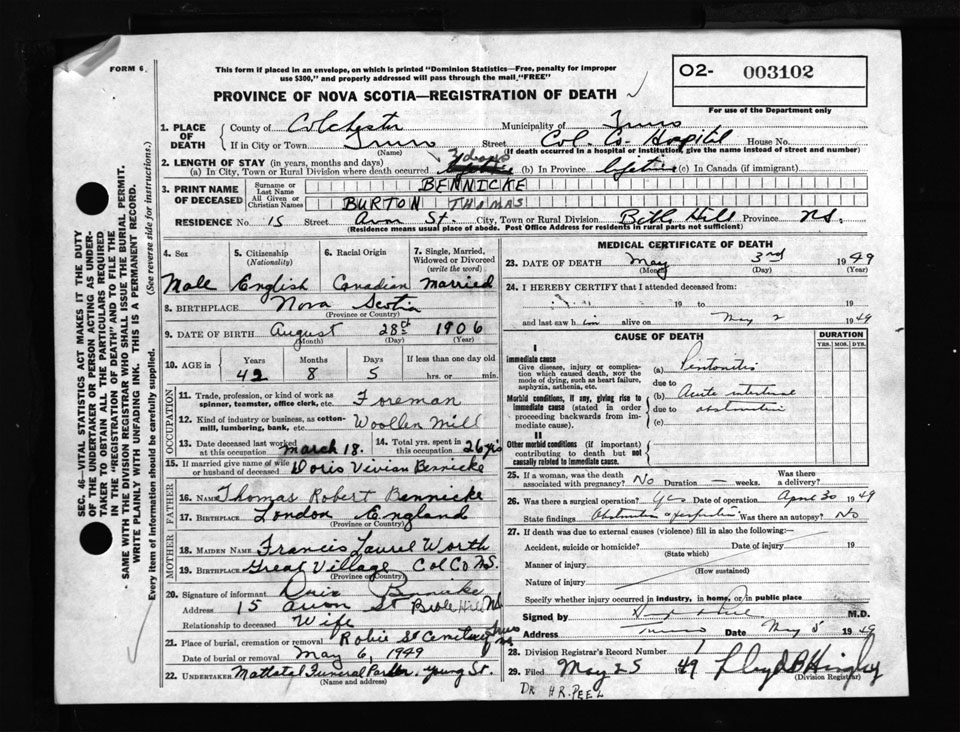 FORM 6.
This form if placed in an envelope, on which is printed "Dominion Statistics—Free, penalty for improper
use $300," and properly addressed will pass through the mail "FREE"
O2- 003102
For use of the Department only
PROVINCE OF NOVA SCOTIA—REGISTRATION OF DEATH
SEC. 46—VITAL STATISTICS ACT MAKES IT THE DUTY
OF THE UNDERTAKER OR PERSON ACTING AS UNDER-
TAKER TO OBTAIN ALL THE PARTICULARS REQUIRED
IN THE "REGISTRATION OF DEATH" AND TO FILE THE
SAME WITH THE DIVISION REGISTRAR WHO SHALL ISSUE THE BURIAL PERMIT.
WRITE PLAINLY WITH UNFADING INK. THIS IS A PERMANENT RECORD.
Every item of information should be carefully supplied. (See reverse side for instructions.)
1. PLACE OF DEATH
County of Colchester Municipality of Truro
If in City or Town Truro Street Col. Co. Hospital House No.
(Name) (If death occurred in a hospital or institution, give the name instead of street and number)
2. LENGTH OF STAY (in years, months and days)
(a) In City, Town or Rural Division where death occurred 7 days (b) In Province lifetime (c) In Canada (if immigrant)
3. PRINT NAME OF DECEASED
Surname or Last Name BENNICKE
All Given or Christian Names BURTON THOMAS
RESIDENCE No. 15 Street Avon St. City, Town or Rural Division Bible Hill Province N.S.
(Residence means usual place of abode. Post Office Address for residents in rural parts not sufficient)
4. Sex 5. Citizenship (Nationality) 6. Racial Origin 7. Single, Married, Widowed or Divorced (write the word)
Male English Canadian Married
8. BIRTHPLACE Nova Scotia
(Province or Country)
9. DATE OF BIRTH August 28st 1906
(Month) (Day) (Year)
10. AGE in Years Months Days If less than one day old
42 8 5 hrs. or min.
OCCUPATION
11. Trade, profession, or kind of work as
spinner, teamster, office clerk, etc. Foreman
12. Kind of industry or business, as cotton-
mill, lumbering, bank, etc. Woollen Mill
13. Date deceased last worked at this occupation March 18. 14. Total yrs. spent in this occupation 26 yrs
15. If married give name of wife or husband of deceased Doris Vivian Bennicke
FATHER
16. NAME Thomas Robert Bennicke
17. BIRTHPLACE London England
(Province or Country)
MOTHER
18. MAIDEN NAME Francis Laurel Worth
19. BIRTHPLACE Great Village Col Co N.S.
(Province or Country)
20. Signature of informant Doris Bennicke
Address 15 Avon St Bible Hill NS
Relationship to deceased Wife
21. Place of burial, cremation or removal Robie St Cemetery Truro NS
Date of burial or removal May 6, 1949
22. UNDERTAKER Mattatal Funeral Parlor. Young St.
(Name and address)
MEDICAL CERTIFICATE OF DEATH
23. DATE OF DEATH May 3rd 1949
(Month) (Day) (Year)
24. I HEREBY CERTIFY that I attended deceased from:
19 to 19
and last saw him alive on May 2 1949
CAUSE OF DEATH DURATION
YRS. MOS. DYS.
I
Immediate cause
Give disease, injury or complica-
tion which caused death, NOT the
mode of dying, such as heart failure,
asphyxia, asthenia, etc.
(a) Peritonitis
due to
Morbid conditions, if any, giving rise to
immediate cause (stated in order
proceeding backwards from im-
mediate cause).
(b) Acute intestinal
due to obstruction
(c)
II
Other morbid conditions (if important)
contributing to death but not
causally related to immediate cause.
25. If a woman, was the death associated with pregnancy? No Duration — weeks. Was there a delivery?
26. Was there a surgical operation? Yes Date of operation April 30 1949
State findings Obstruction Was there an autopsy? No
27. If death was due to external causes (violence) fill in also the following:—
Accident, suicide or homicide? Date of injury 19
(State which)
Manner of injury
(How sustained)
Nature of injury
Specify whether injury occurred in industry, in home, or in public place
Signed by M.D.
Address Truro Date May 5 1949
28. Division Registrar's Record Number
29. Filed May 25 49 Lloyd B Hingley
(Division Registrar)
DR H.R. PEEL